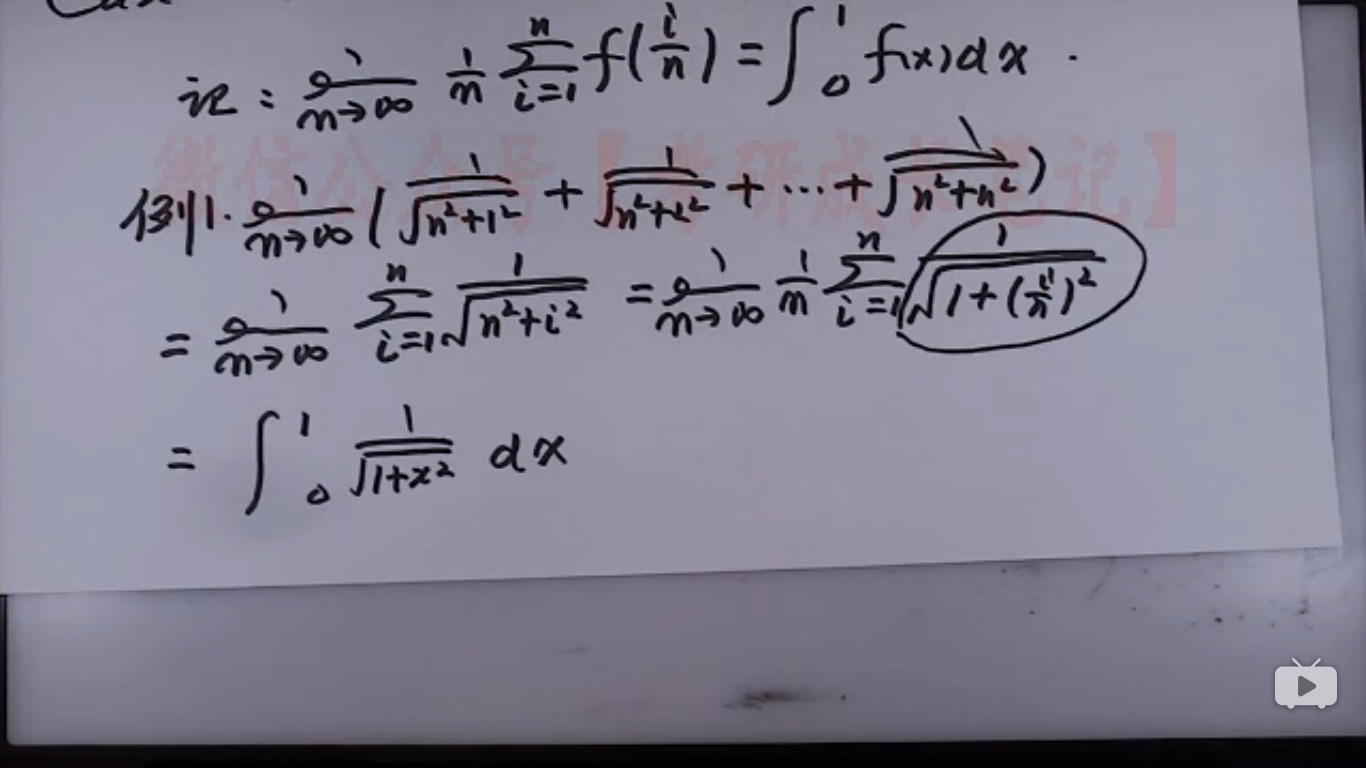 记: lim n→∞ 1/n ∑ i=1 n f(i/n) = ∫ 0 1 f(x)dx.
例1. lim n→∞ (1/√(n²+1²) + 1/√(n²+2²) + ... + 1/√(n²+n²))
= lim n→∞ ∑ i=1 n 1/√(n²+i²) = lim n→∞ 1/n ∑ i=1 n 1/√(1+(i/n)²)
= ∫ 0 1 1/√(1+x²) dx